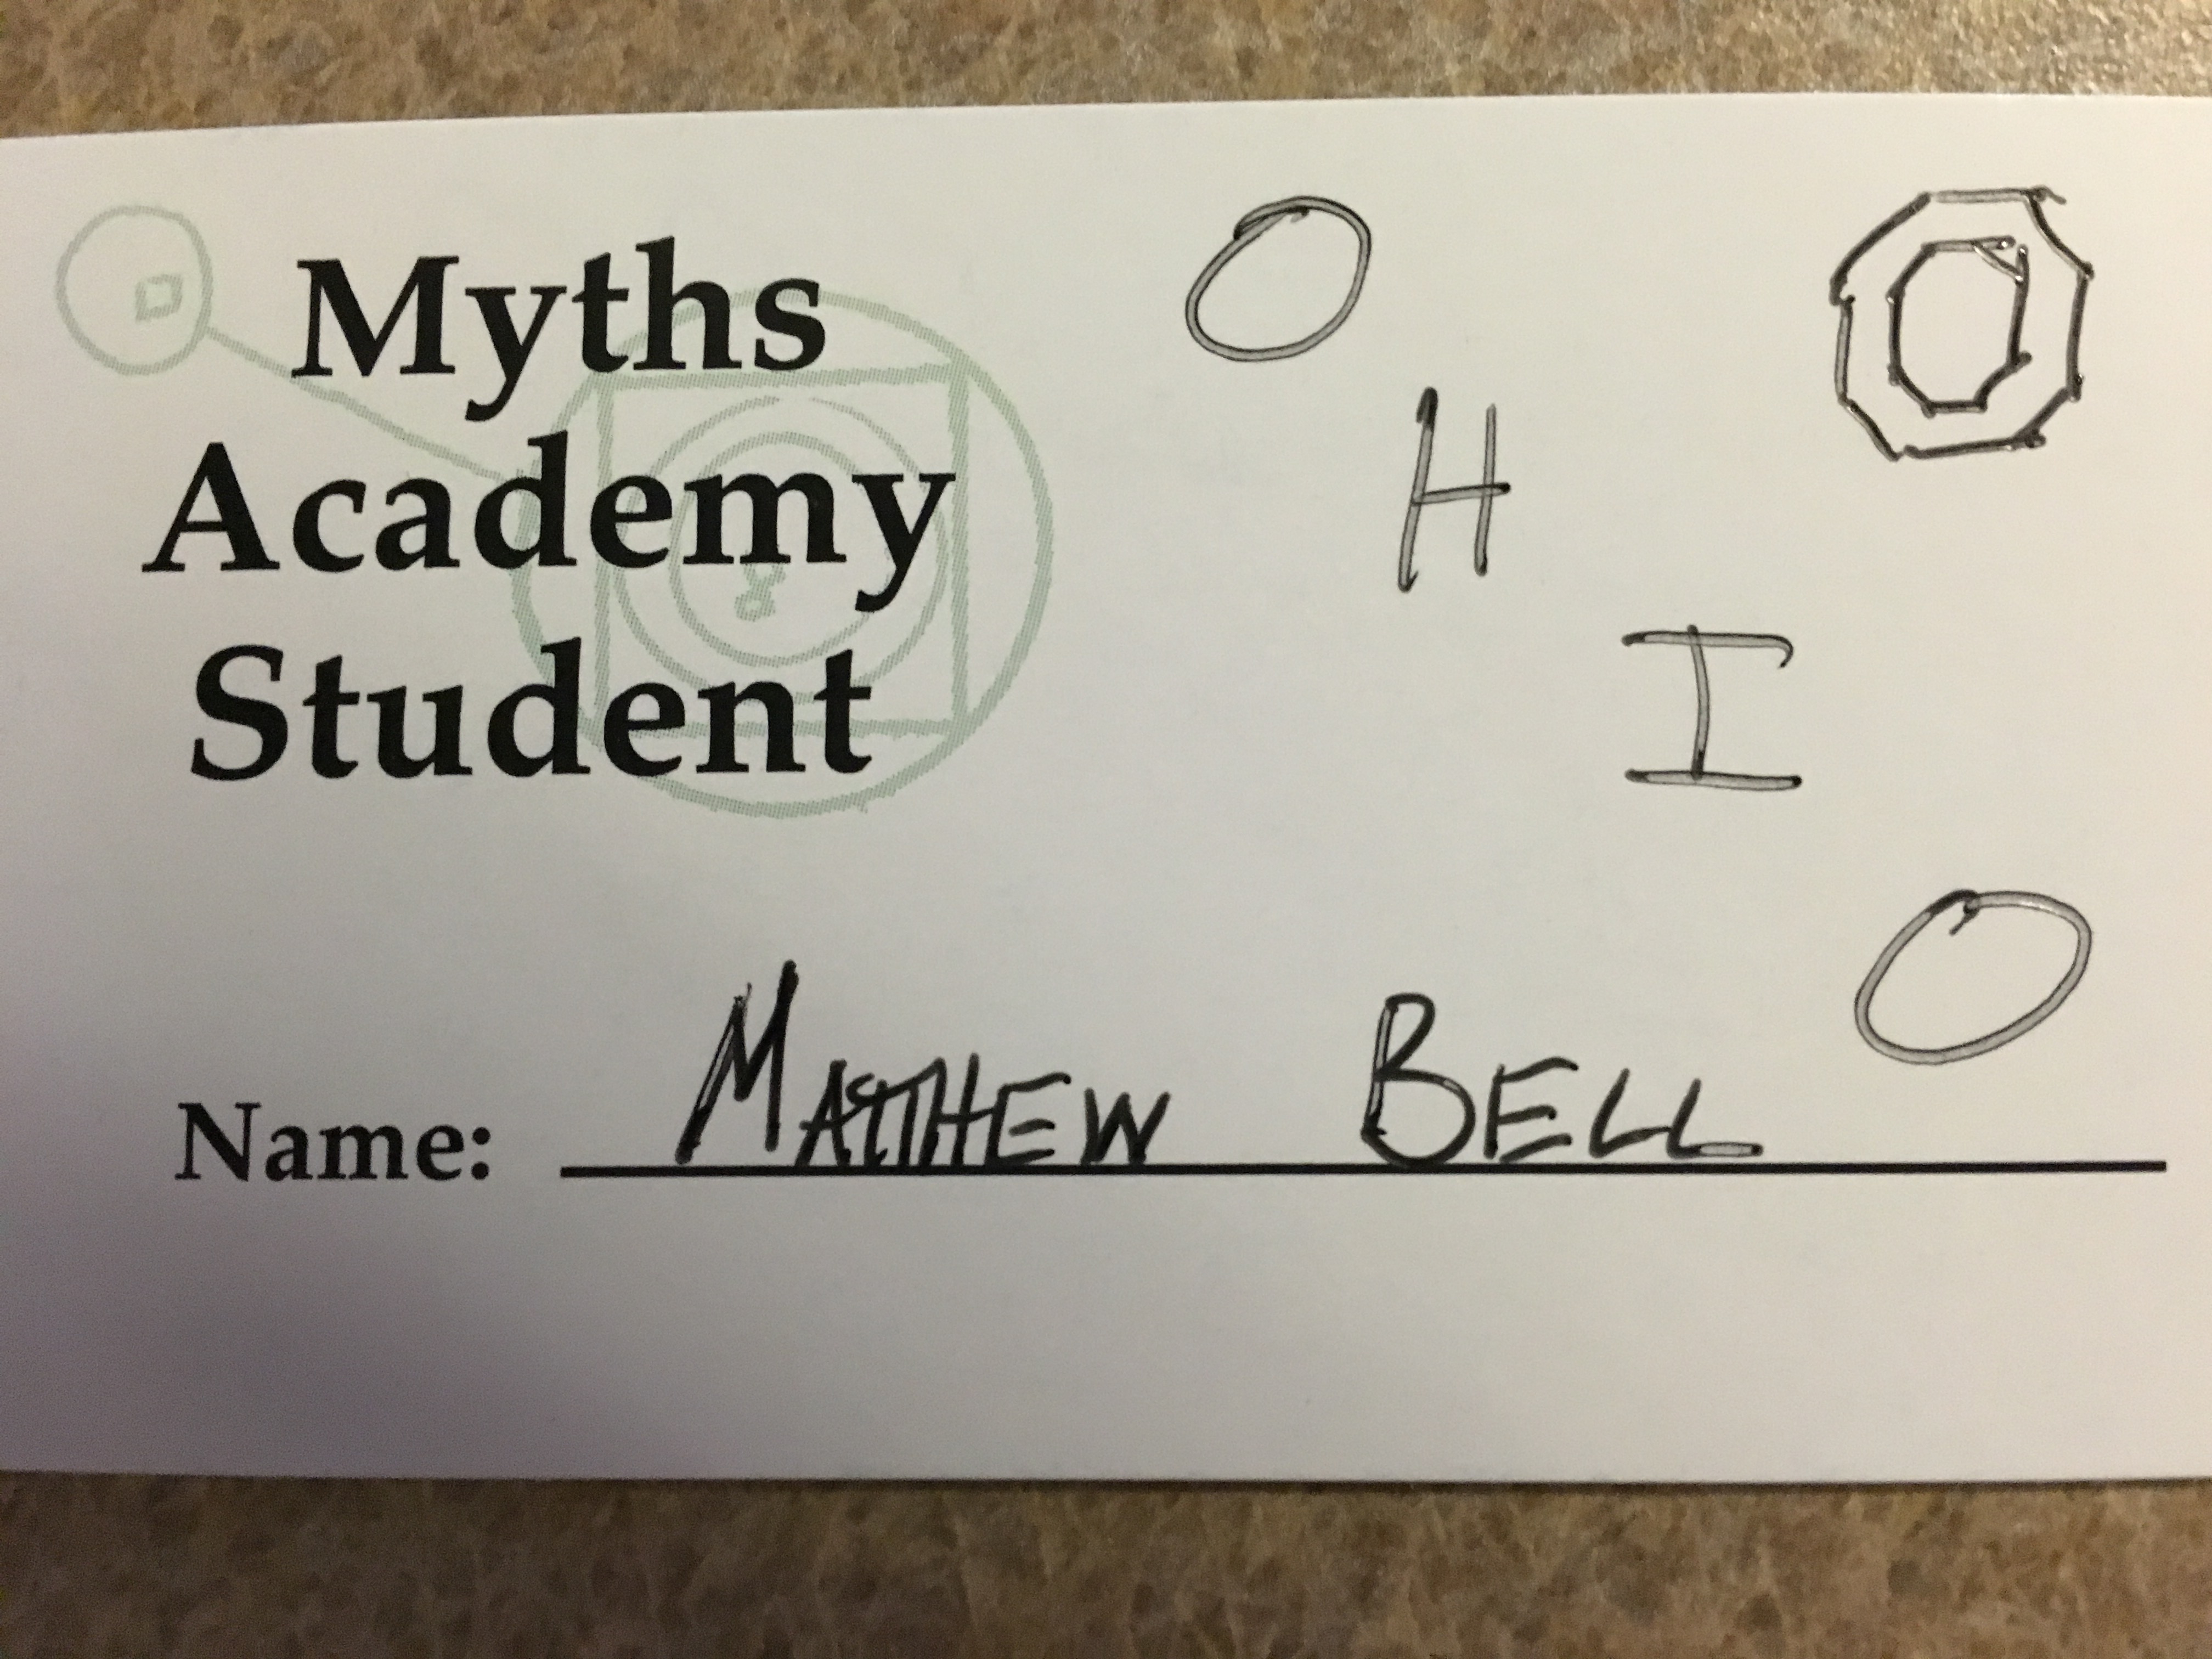 Myths
Academy
Student
O
H
I
O
Name: MATTHEW BELL